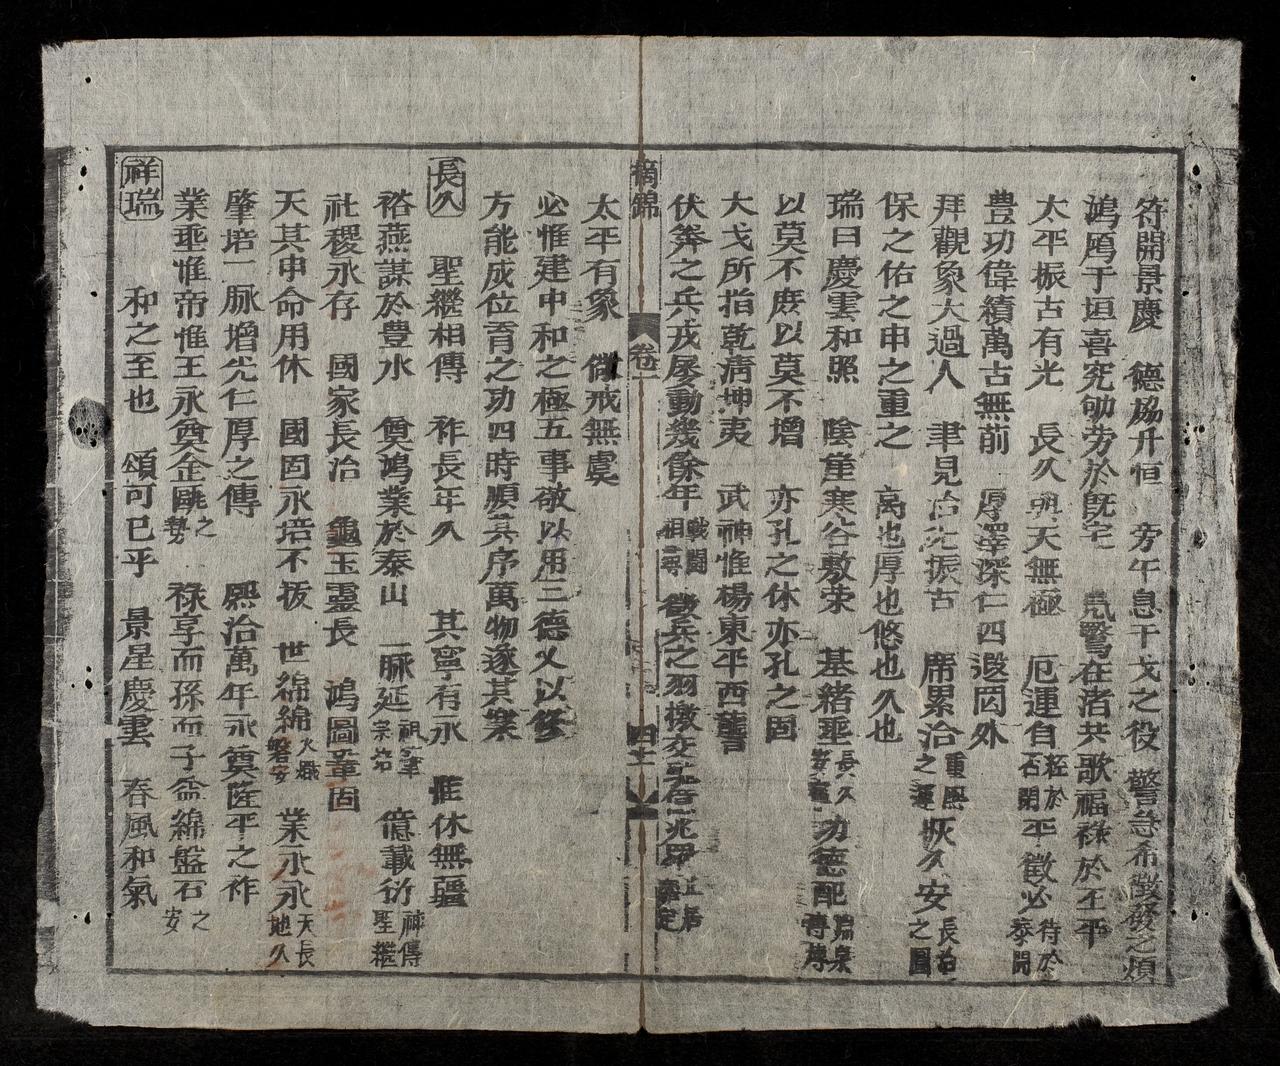 符開景慶 德協升恒 旁午息干戈之役 警急希徵發之煩
鴻鴈于垣喜究劬勞於旣宅 鳧鷖在渚共歌福祿於丕平
太平振古有光 長久與天無極 厄運自 平徵必 待於泰開
豊功偉績萬古無前 厚澤深仁四遐罔外
拜觀象大過人 聿見治光振古 席累洽 重熙之運 恢久安 長治之圖
保之佑之申之重之 高也厚也悠也久也
瑞日慶雲和照 陰崖寒谷敷荣 基緖垂 長久 功德配
以莫不庶以莫不增 亦孔之休亦孔之固
大戈所指乾淸坤夷 武神惟楊東平西讋
伏莾之兵戎屡動幾餘年 戰鬪相尋 徵兵之羽檄交
摘錦 卷一 四十
太平有象 儆戒無虞
必惟建中和之極五事敬以用三德乂以修
方能成位育之功四時順其序萬物遂其寀
長久 聖繼相傳 祚長年久 其寧有永 惟休無疆
裕燕謀於豊水 奠鴻業於泰山 一脉延 億載衍 神傳聖繼
社稷永存 國家長治 龜玉靈長 鴻圖鞏固
天其申命用休 國固永培不拔 世綿綿 磐安 業永永 天長地久
肇培一脉增光仁厚之傳 熙洽萬年永奠隆平之祚
業垂惟帝惟王永奠金甌 之勢 祿享而孫而子益綿盤石 之安
祥瑞 和之至也 頌可已乎 景星慶雲 春風和氣